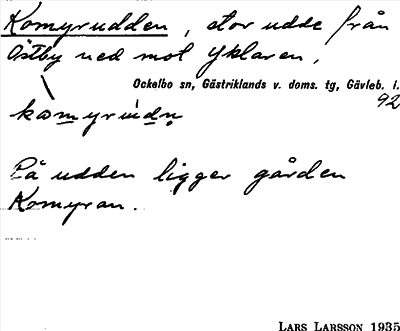 Komyrudden, stor udde från
Östby ned mot Yklaren,
Ockelbo sn, Gästriklands v. doms. tg, Gävleb. l.
92
På udden ligger gården
Komyran.
LARS LARSSON 1935